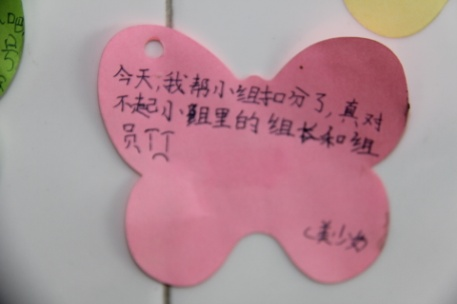 今天,我帮小组扣分了,真对
不起小组里的组长和组
员TT